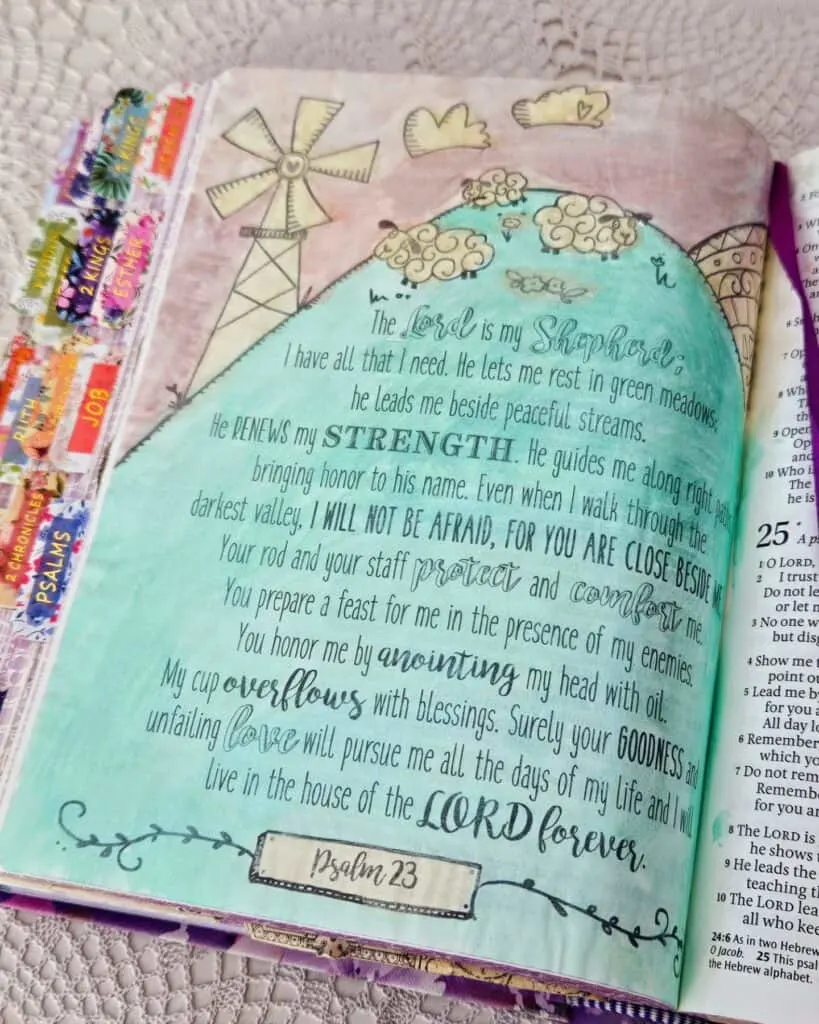 2 KINGS
2 KINGS
ESTHER
RUTH
JOB
2 CHRONICLES
PSALMS
The Lord is my Shepherd;
I have all that I need. He lets me rest in green meadows;
he leads me beside peaceful streams.
He RENEWS my STRENGTH. He guides me along right
bringing honor to his name. Even when I walk through the
darkest valley, I WILL NOT BE AFRAID, FOR YOU ARE CLOSE BESIDE ME.
Your rod and your staff protect and comfort me.
You prepare a feast for me in the presence of my enemies.
You honor me by anointing my head with oil.
My cup overflows with blessings. Surely your GOODNESS and
unfailing love will pursue me all the days of my life and I will
live in the house of the LORD forever.
Psalm 23
he is
25
A
1 O LORD,
2 I trust
Do not le
or let
3 No one w
but
4 Show me
point
5 Lead me by
for you
All day
6 Remember
which
7 Do not
for you
8 The LORD is
he shows
9 He leads the
teaching
10 The LORD
all who
24:6 As in two Hebrew
O Jacob. 25 This
the Hebrew alphabet.